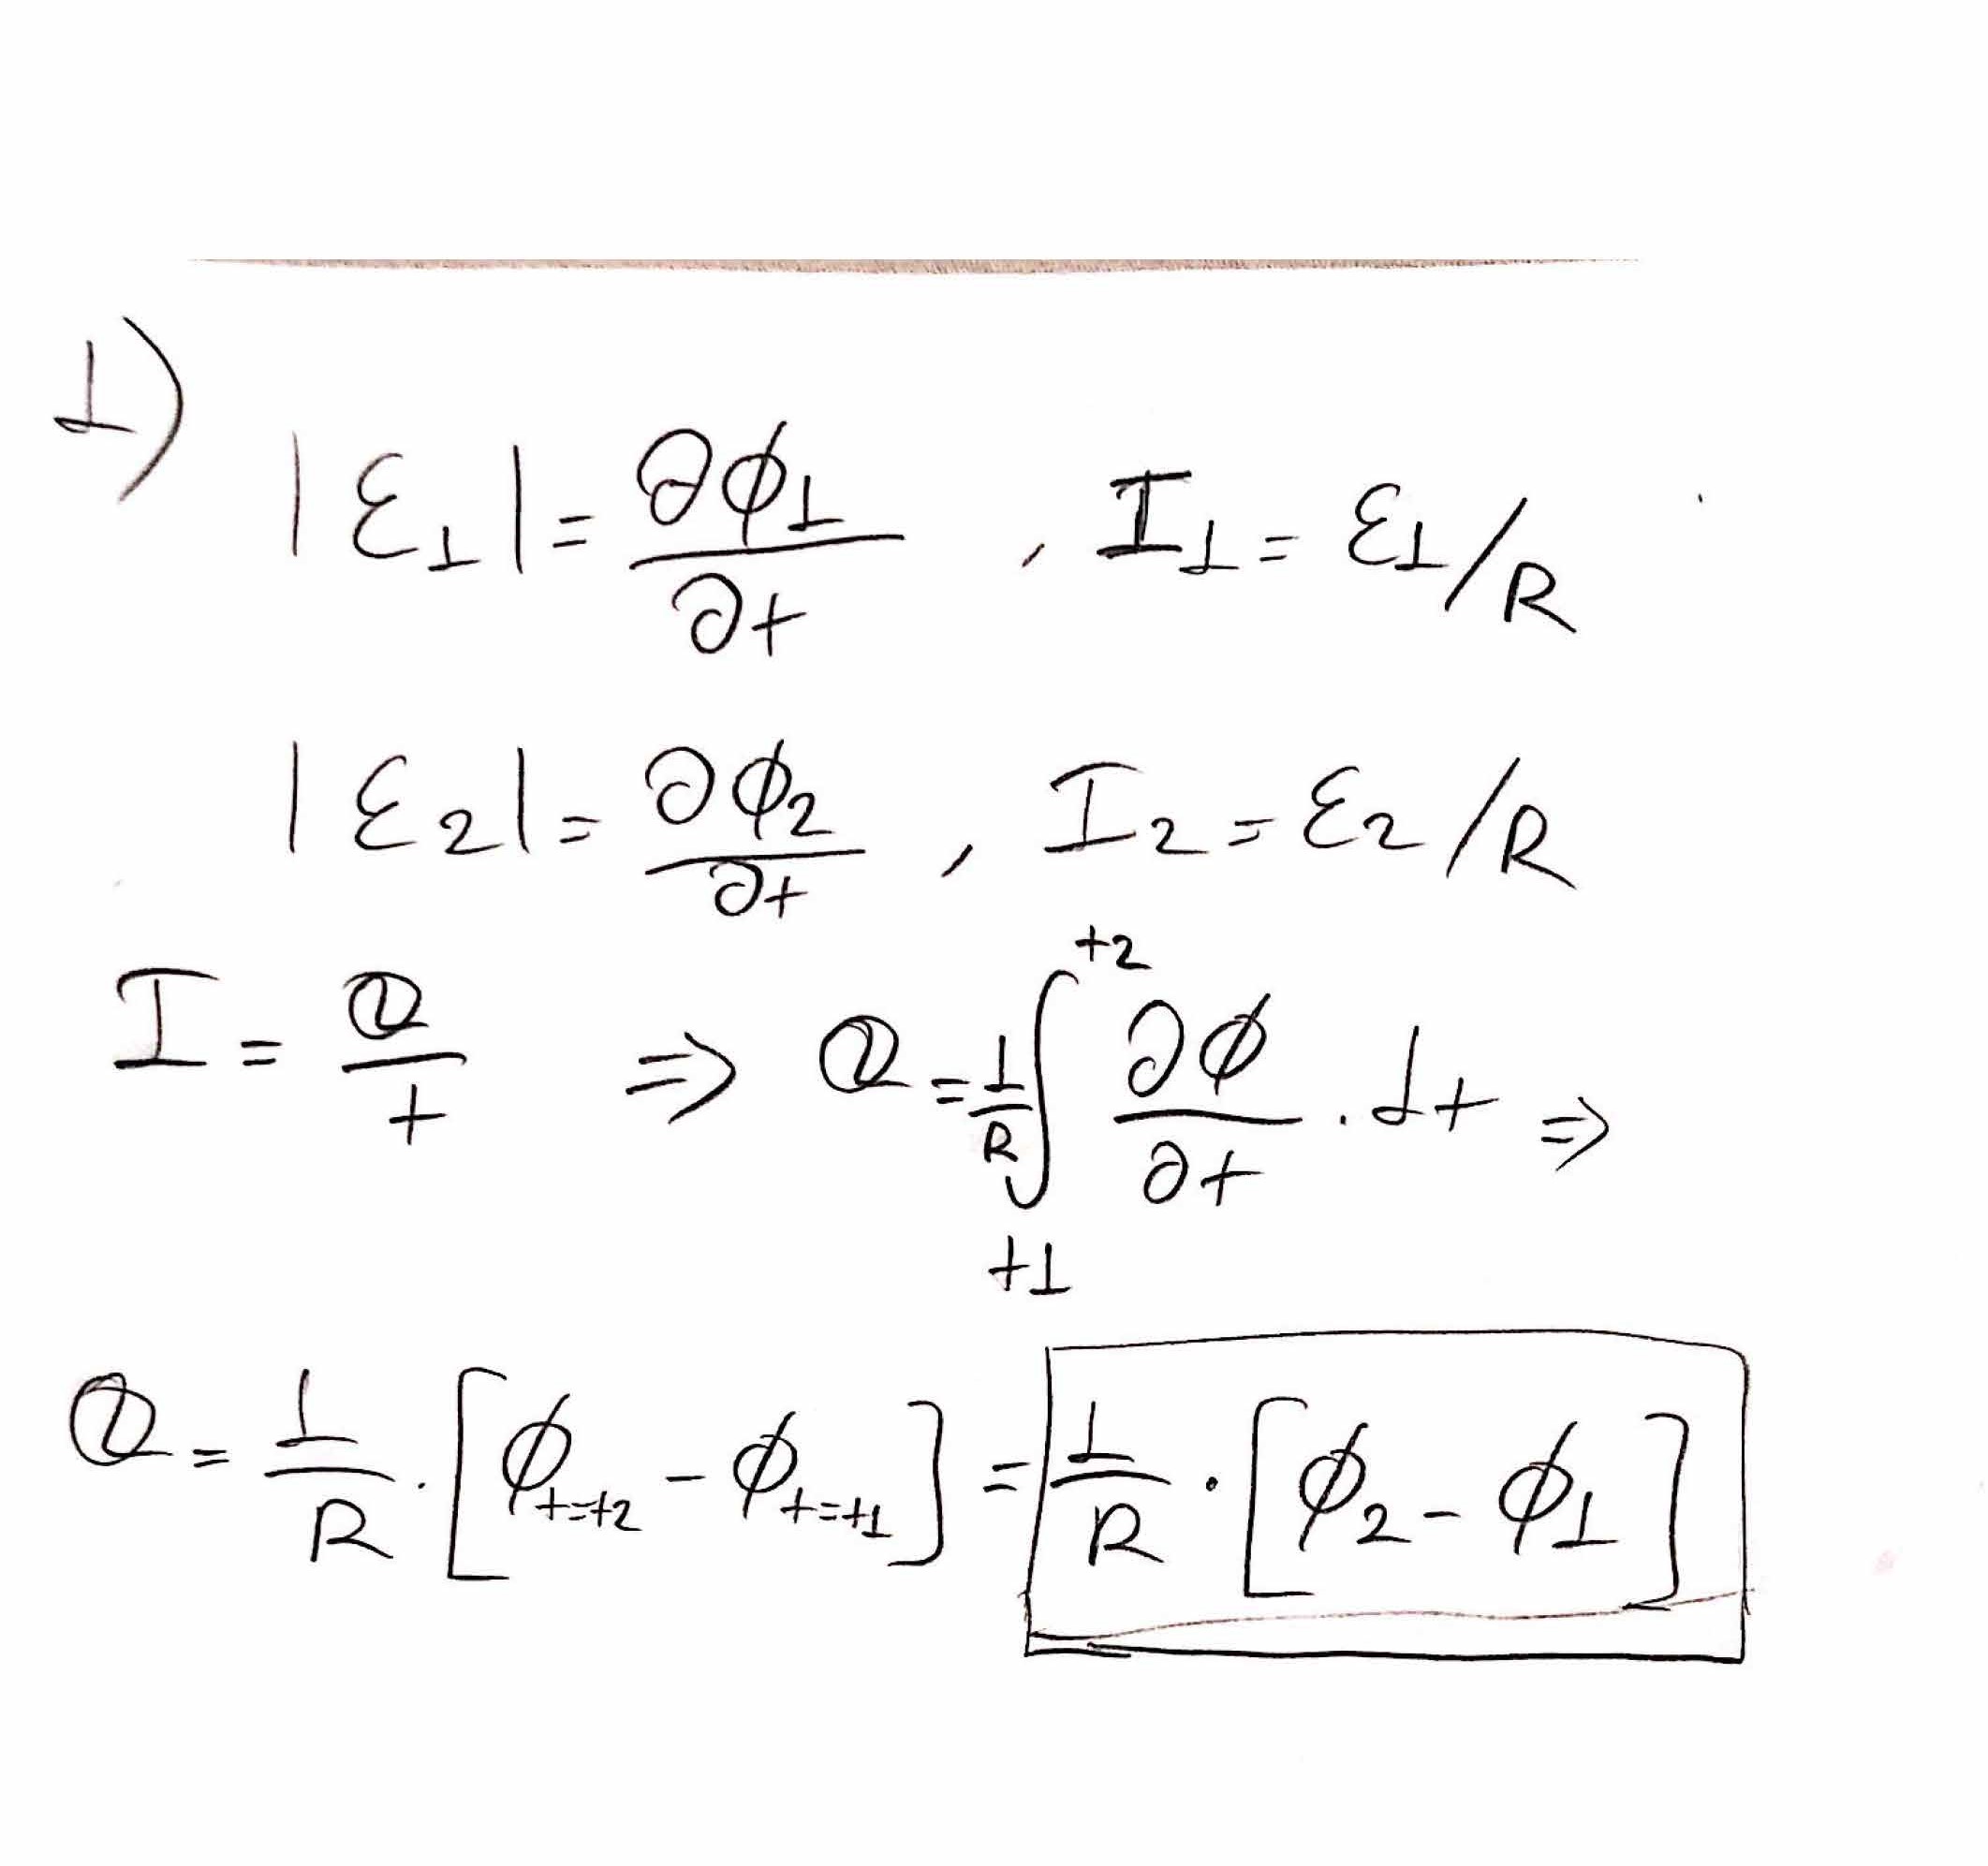 1)
|ε₁| = ∂ϕ₁/∂t , I₁ = ε₁/R
|ε₂| = ∂ϕ₂/∂t , I₂ = ε₂/R
I = Q/t ⇒ Q = 1/R ∫_{t1}^{t2} ∂ϕ/∂t . dt ⇒
Q = 1/R . [ϕ_{t=t2} - ϕ_{t=t1}] = 1/R . [ϕ₂ - ϕ₁]